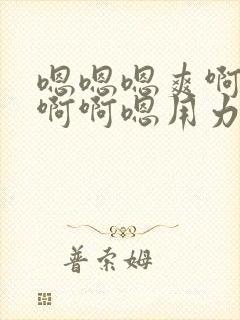 嗯嗯嗯爽啊
啊啊嗯用力
普索姆